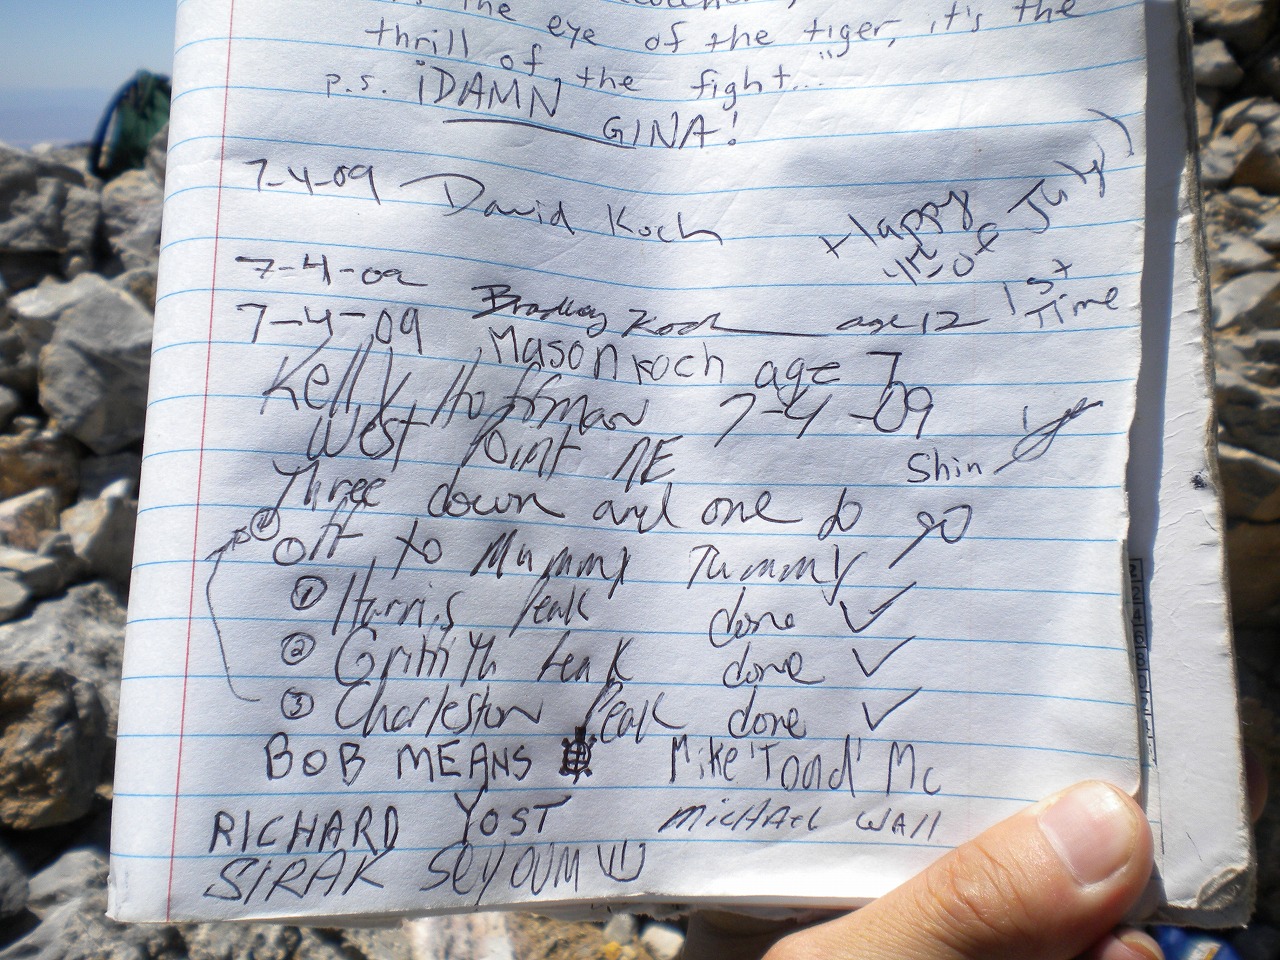 the eye of the tiger, it's the
thrill of the fight..."
p.s. ¡DAMN GINA!
7-4-09 David Koch
Happy 4th of July
7-4-09 Bradley Koch age 12 1st Time
7-4-09 Mason Koch age 7
Kelly Hoffman 7-4-09
West Point NE
Shin
Three down and one to go
④ Off to Mummy Tummy
① Harris Peak done ✓
② Griffith Peak done ✓
③ Charleston Peak done ✓
BOB MEANS Mike 'Toad' Mc
RICHARD YOST MicHAel WAll
SIRAK SEYOUM